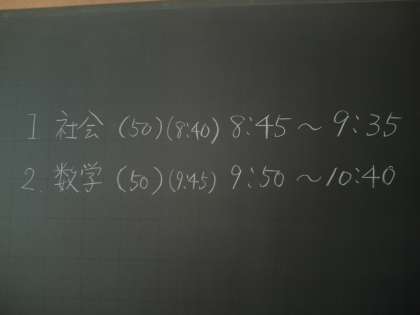 1 社会 (50)(8:40) 8:45 〜 9:35
2. 数学 (50)(9:45) 9:50 〜10:40